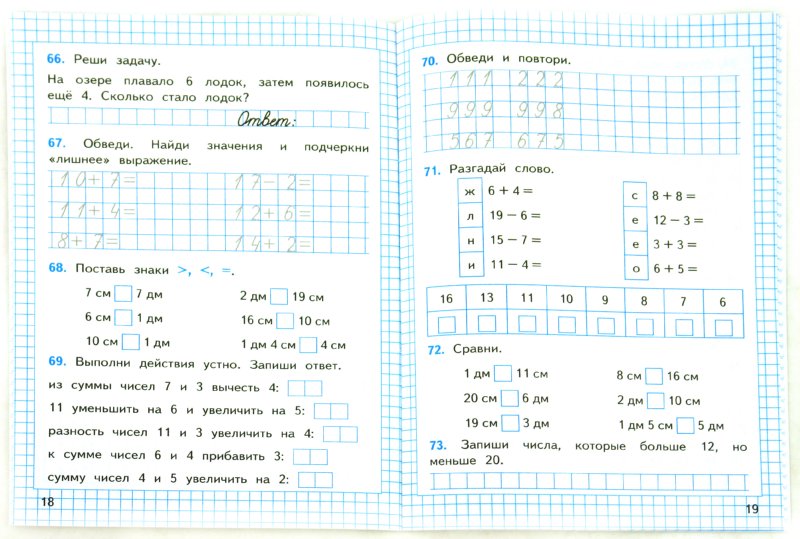 66. Реши задачу.
На озере плавало 6 лодок, затем появилось
ещё 4. Сколько стало лодок?
Ответ:
67. Обведи. Найди значения и подчеркни
«лишнее» выражение.
10+7= 17-2=
11+4= 12+6=
8+7= 14+2=
68. Поставь знаки >, <, =.
7 см 7 дм 2 дм 19 см
6 см 1 дм 16 см 10 см
10 см 1 дм 1 дм 4 см 4 см
69. Выполни действия устно. Запиши ответ.
из суммы чисел 7 и 3 вычесть 4:
11 уменьшить на 6 и увеличить на 5:
разность чисел 11 и 3 увеличить на 4:
к сумме чисел 6 и 4 прибавить 3:
сумму чисел 4 и 5 увеличить на 2:
18
70. Обведи и повтори.
111 222
999 998
567 675
71. Разгадай слово.
ж 6 + 4 = с 8 + 8 =
л 19 − 6 = е 12 − 3 =
н 15 − 7 = е 3 + 3 =
и 11 − 4 = о 6 + 5 =
16 13 11 10 9 8 7 6
72. Сравни.
1 дм 11 см 8 см 16 см
20 см 6 дм 2 дм 10 см
19 см 3 дм 1 дм 5 см 5 дм
73. Запиши числа, которые больше 12, но
меньше 20.
19